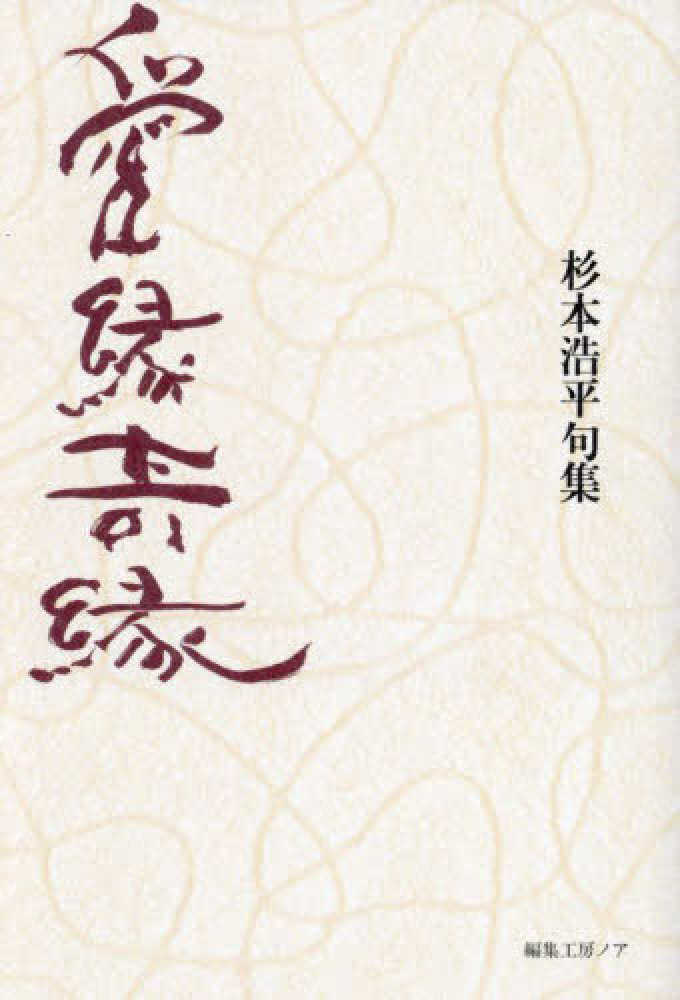 杉本浩平句集
愛縁奇縁
編集工房ノア